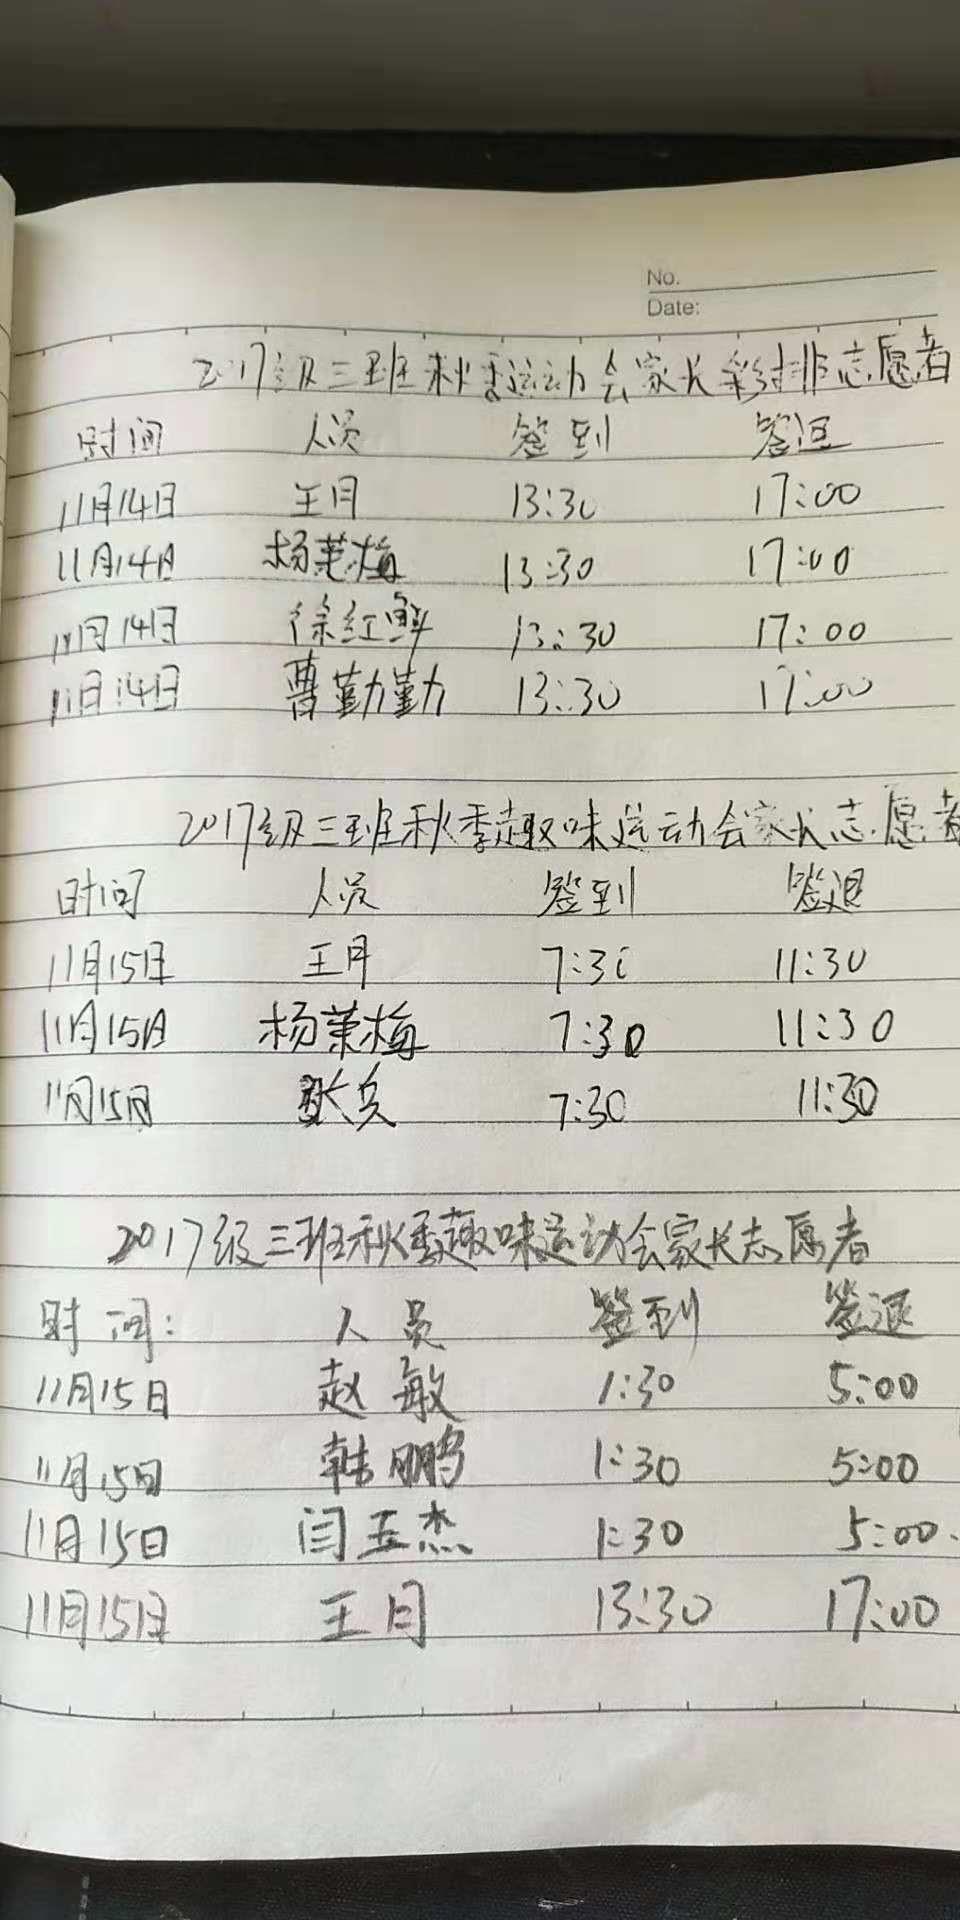 No.
Date:
2017级三班秋季运动会家长彩排志愿者
时间 人员 签到 签退
11月14日 王月 13:30 17:00
11月14日 杨茉梅 13:30 17:00
11月14日 徐红鲜 13:30 17:00
11月14日 曹勤勤 13:30 17:00
2017级三班秋季趣味运动会家长志愿者
时间 人员 签到 签退
11月15日 王月 7:30 11:30
11月15日 杨茉梅 7:30 11:30
11月15日 7:30 11:30
2017级三班秋季趣味运动会家长志愿者
时间: 人员 签到 签退
11月15日 赵敏 1:30 5:00
11月15日 韩鹏 1:30 5:00
11月15日 闫玉杰 1:30 5:00.
11月15日 王月 13:30 17:00